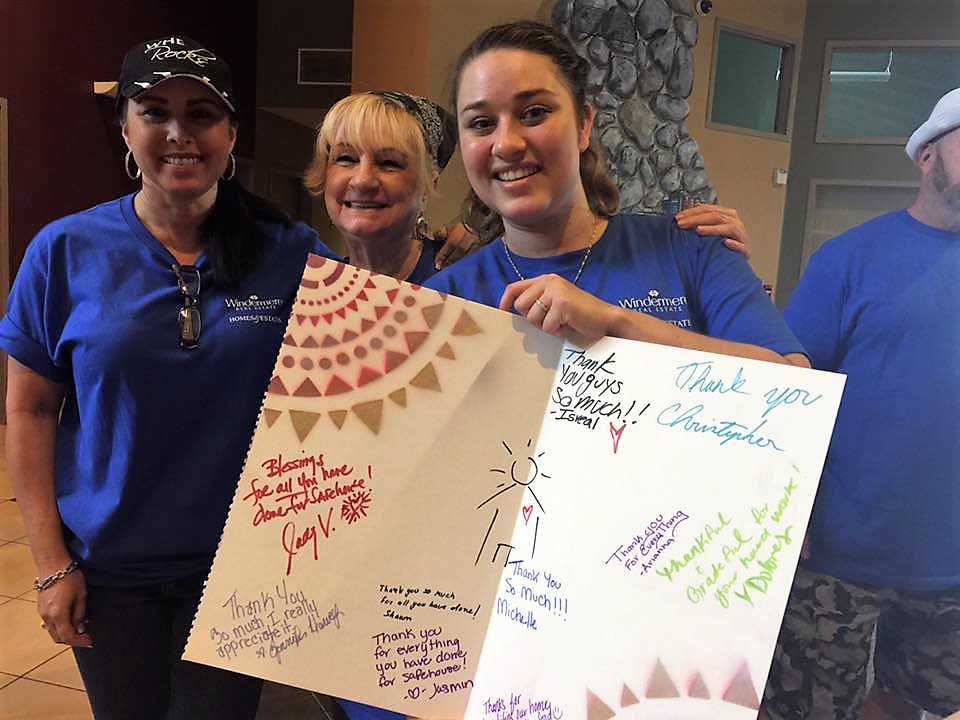 WHE
Rocks
Windermere
REAL ESTATE
HOMES & ESTATES
Windermere
REAL ESTATE
ESTATE
Thank
You guys
So much!!
-Isreal
Thank you
Christopher
Blessings
for all you have
done for Safehouse!
Jody V.
Thank You
For Everything
-Arianna
Thankful
&
Grateful
for
your hard work!
Dolores
Thank You
So Much!!!
Michelle
Thank You
So much I really
appreciate it,
Thank you so much
for all you have done!
Shawn
Thank you
for everything
you have done
for safehouse!
- Jasmin
Thanks for
our home